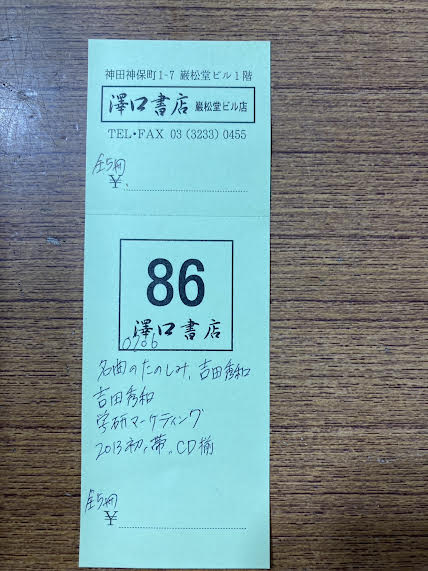 神田神保町1-7 巌松堂ビル1階
澤口書店 巌松堂ビル店
TEL・FAX 03 (3233) 0455
全5冊
¥.
86
澤口書店
0206
名曲のたのしみ、吉田秀和
吉田秀和
学研マーケティング
2013初〃帯〃CD揃
全5冊
¥